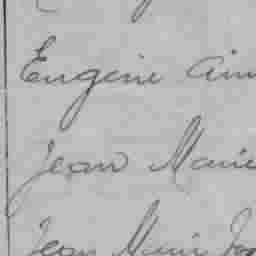 Eugène Aim
Jean Marie
Jean Marie Jos